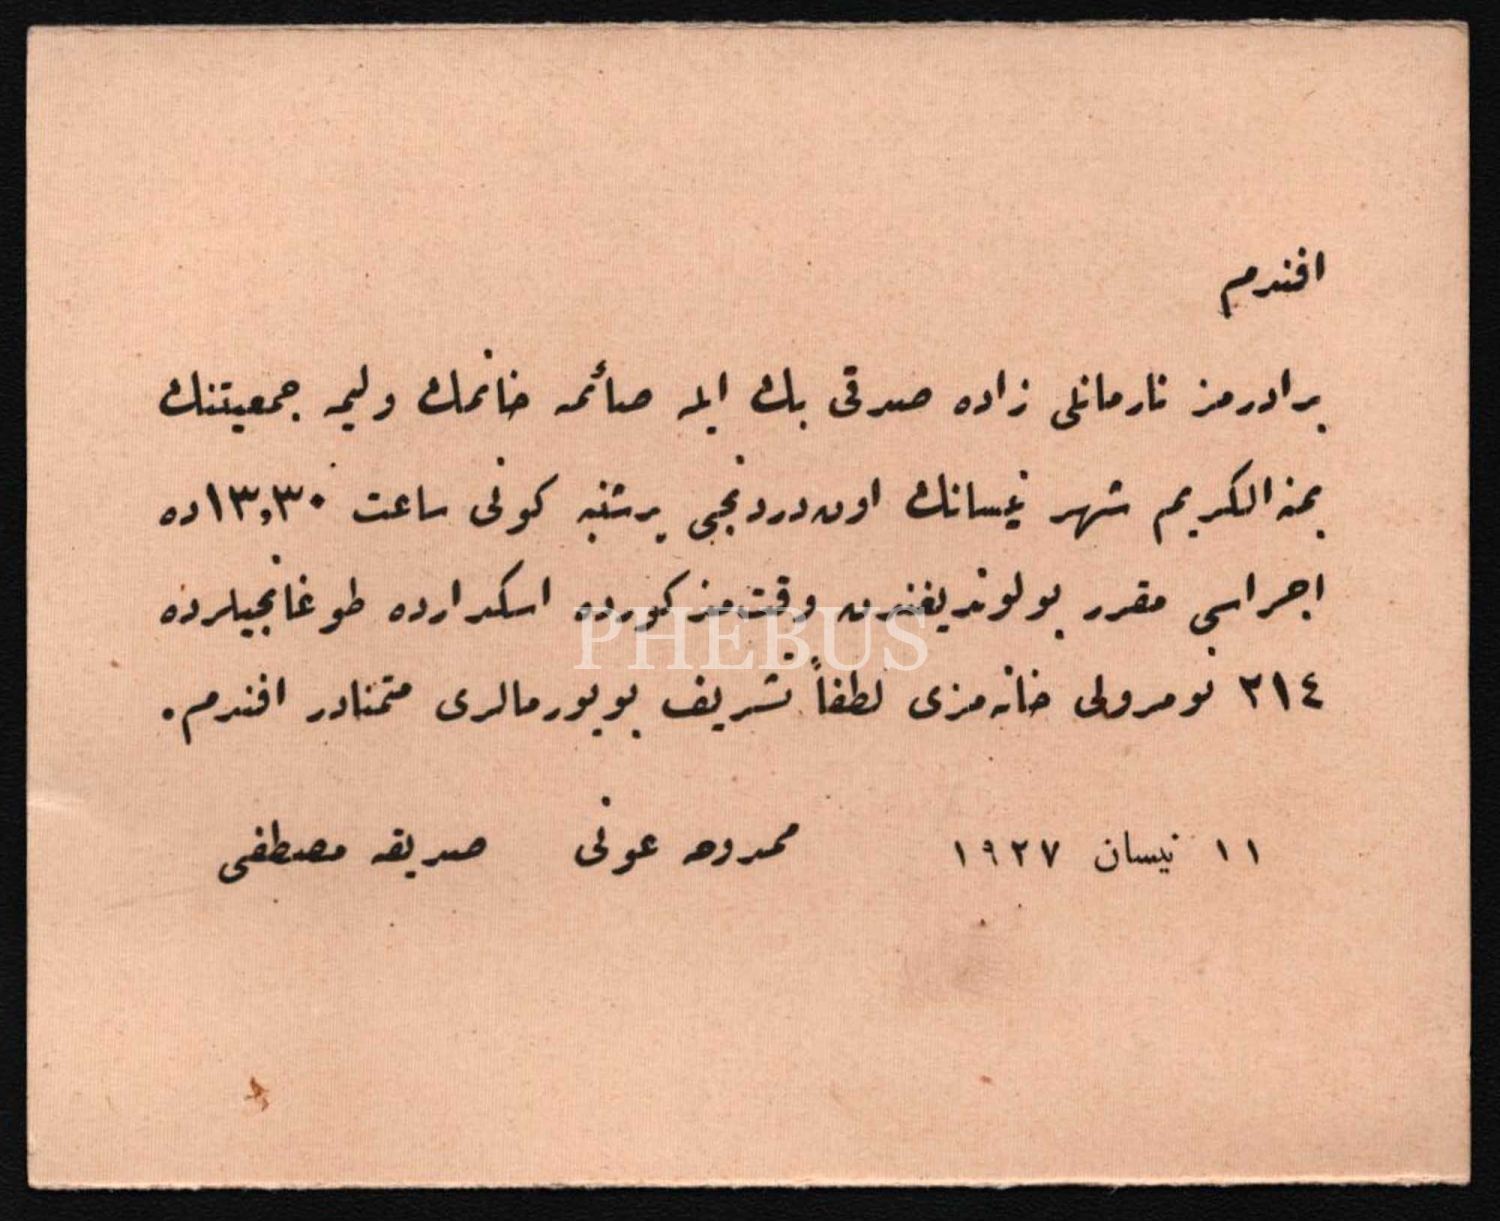 افندم
برادرمز نارمانلی زاده صدقی بك ایله صائمه خانمك ولیمه جمعیتنك
بمنه الكریم شهر نیسانك اون‌دردنجی پرشنبه كونی ساعت ١٣,٣٠ ده
اجراسی مقرر بولوندیغندن وقت مذكورده اسكدارده طوغانجیلرده
٢١٤ نومرولی خانه‌مزی لطفاً تشریف بویورمالری متمنادر افندم.
١١ نیسان ١٩٢٧ ممدوح عونی صدیقه مصطفی
PHEBUS